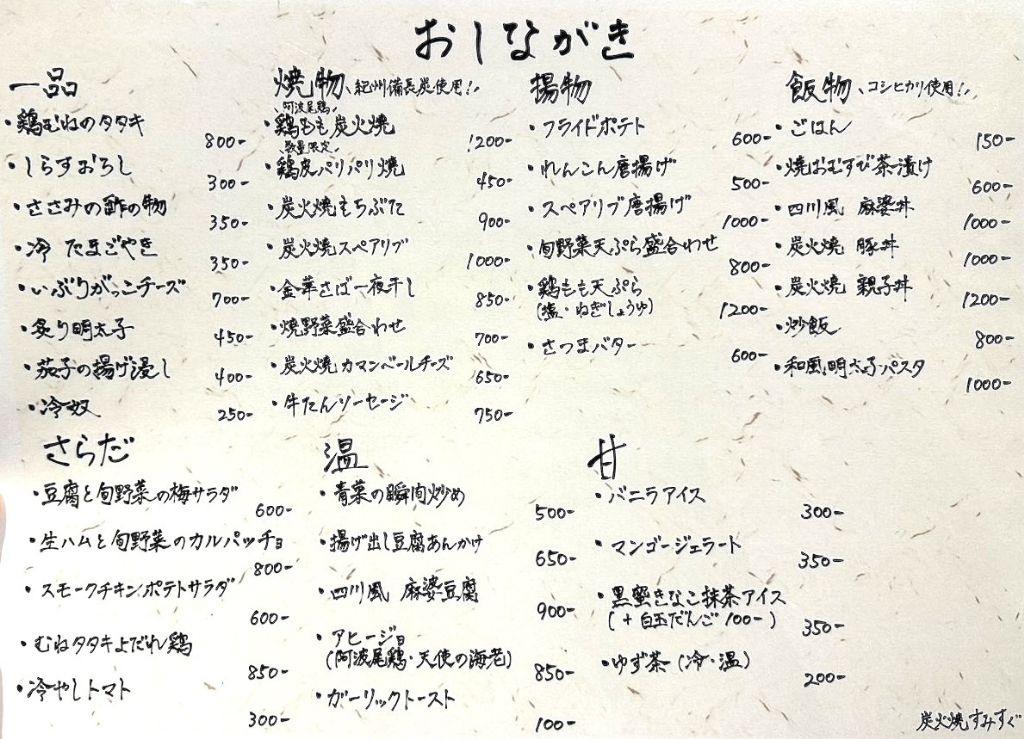 おしながき
一品
・鶏むねのタタキ 800-
・しらすおろし 300-
・ささみの酢の物 350-
・冷 たまごやき 350-
・いぶりがっこチーズ 700-
・炙り明太子 450-
・茄子の揚げ浸し 400-
・冷奴 250-
焼物、紀州備長炭使用!!
＼阿波尾鶏／
・鶏もも炭火焼 1200-
＼数量限定／
・鶏皮パリパリ焼 450-
・炭火焼もちぶた 900-
・炭火焼スペアリブ 1000-
・金華さば一夜干し 850-
・焼野菜盛合わせ 700-
・炭火焼カマンベールチーズ 650-
・牛たんソーセージ 750-
揚物
・フライドポテト 600-
・れんこん唐揚げ 500-
・スペアリブ唐揚げ 1000-
・旬野菜天ぷら盛合わせ 800-
・鶏もも天ぷら
(塩・ねぎしょうゆ) 1200-
・さつまバター 600-
飯物、コシヒカリ使用!!
・ごはん 150-
・焼おむすび茶漬け 600-
・四川風 麻婆丼 1000-
・炭火焼 豚丼 1000-
・炭火焼 親子丼 1200-
・炒飯 800-
・和風明太子パスタ 1000-
さらだ
・豆腐と旬野菜の梅サラダ 600-
・生ハムと旬野菜のカルパッチョ 800-
・スモークチキンポテトサラダ 600-
・むねタタキよだれ鶏 850-
・冷やしトマト 300-
温
・青菜の瞬間炒め 500-
・揚げ出し豆腐あんかけ 650-
・四川風 麻婆豆腐 900-
・アヒージョ
(阿波尾鶏・天使の海老) 850-
・ガーリックトースト 100-
甘
・バニラアイス 300-
・マンゴージェラート 350-
・黒蜜きなこ抹茶アイス
(+白玉だんご100-) 350-
・ゆず茶(冷・温) 200-
炭火焼すみすぐ